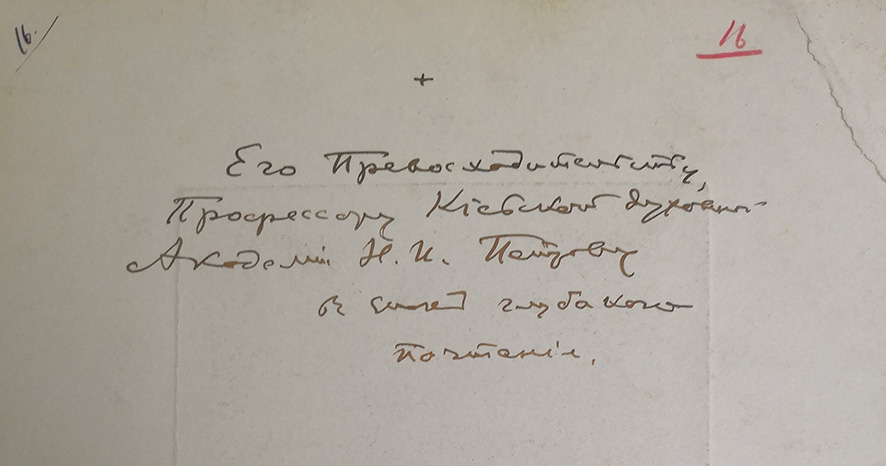 16.
16
+
Его Превосходительству,
Профессору Кіевской Духовной
Академіи Н. И. Петрову
въ знакъ глубокаго
почтенія.